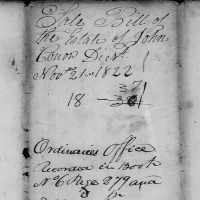 Sale Bill of
the Estate of John
Conor Decd
Novr 21st 1822
37
18 - 36
Ordinaries Office
Recorded in Book
N C Page 279 and